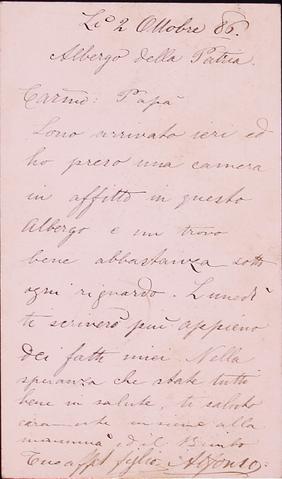 Li 2 Ottobre 86.
Albergo della Patria.
Carmo: Papà
Sono arrivato ieri ed
ho preso una camera
in affitto in questo
Albergo e mi trovo
bene abbastanza sotto
ogni riguardo. Lunedì
ti scriverò più appieno
dei fatti miei. Nella
speranza che state tutti
bene in salute, ti saluto
caramente insieme alla
mamma ed il Bimbo
Tuo aff figlio Alfonso.